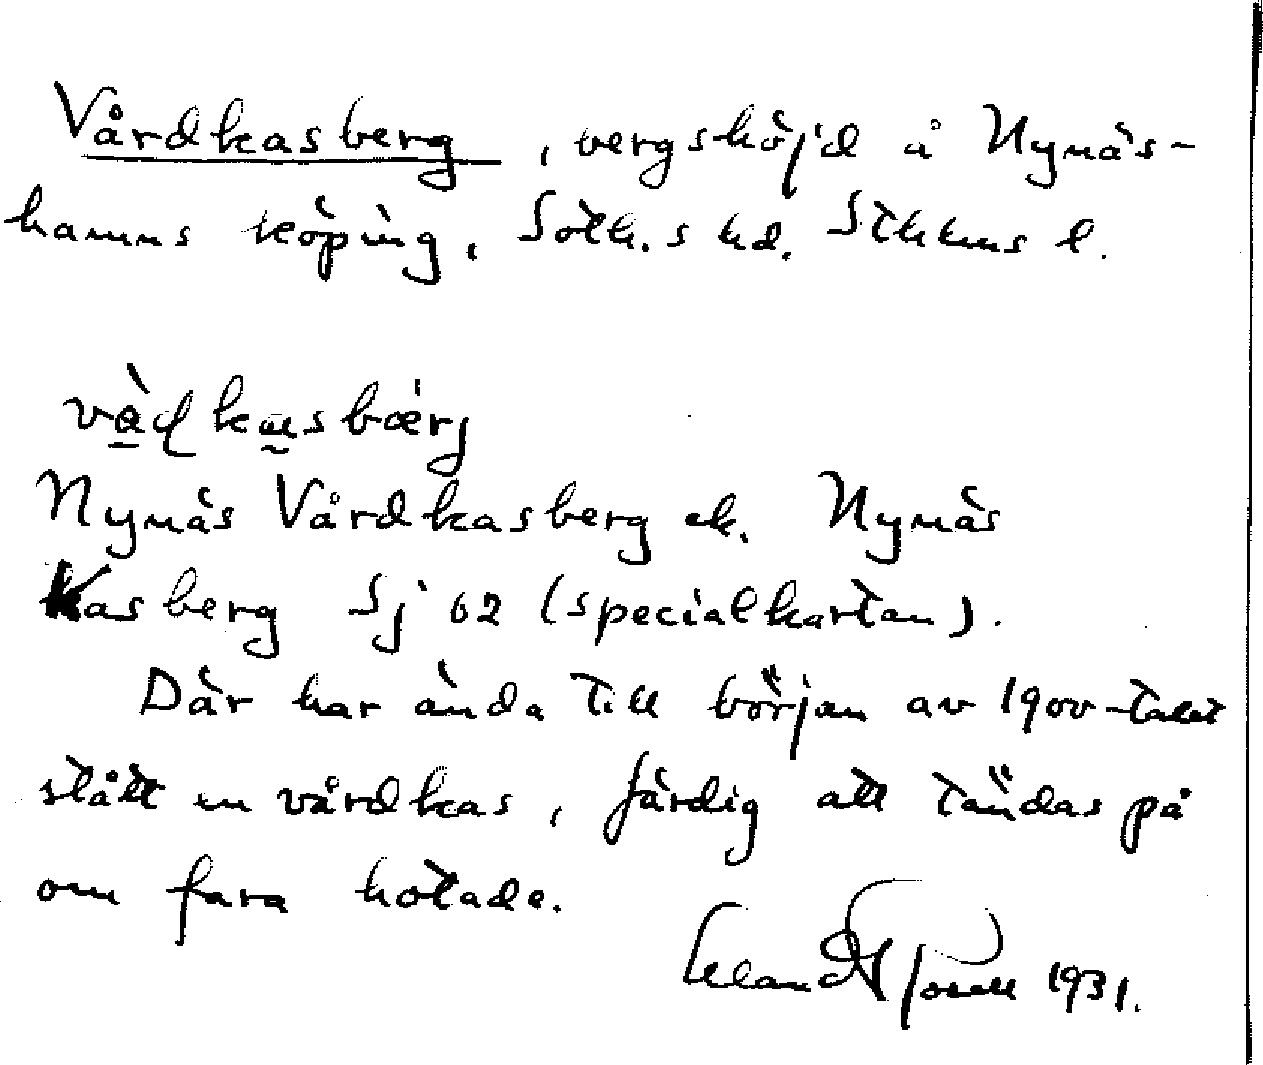 Vårdkasberg, bergshöjd å Nynäs-
hamns köping, Soth.s hd. Sthlms l.
Nynäs Vårdkasberg ek. Nynäs
Kasberg Sj 62 (specialkartan).
Där har ända till början av 1900-talet
stått en vårdkas, färdig att tändas på
om fara hotade.
1931.